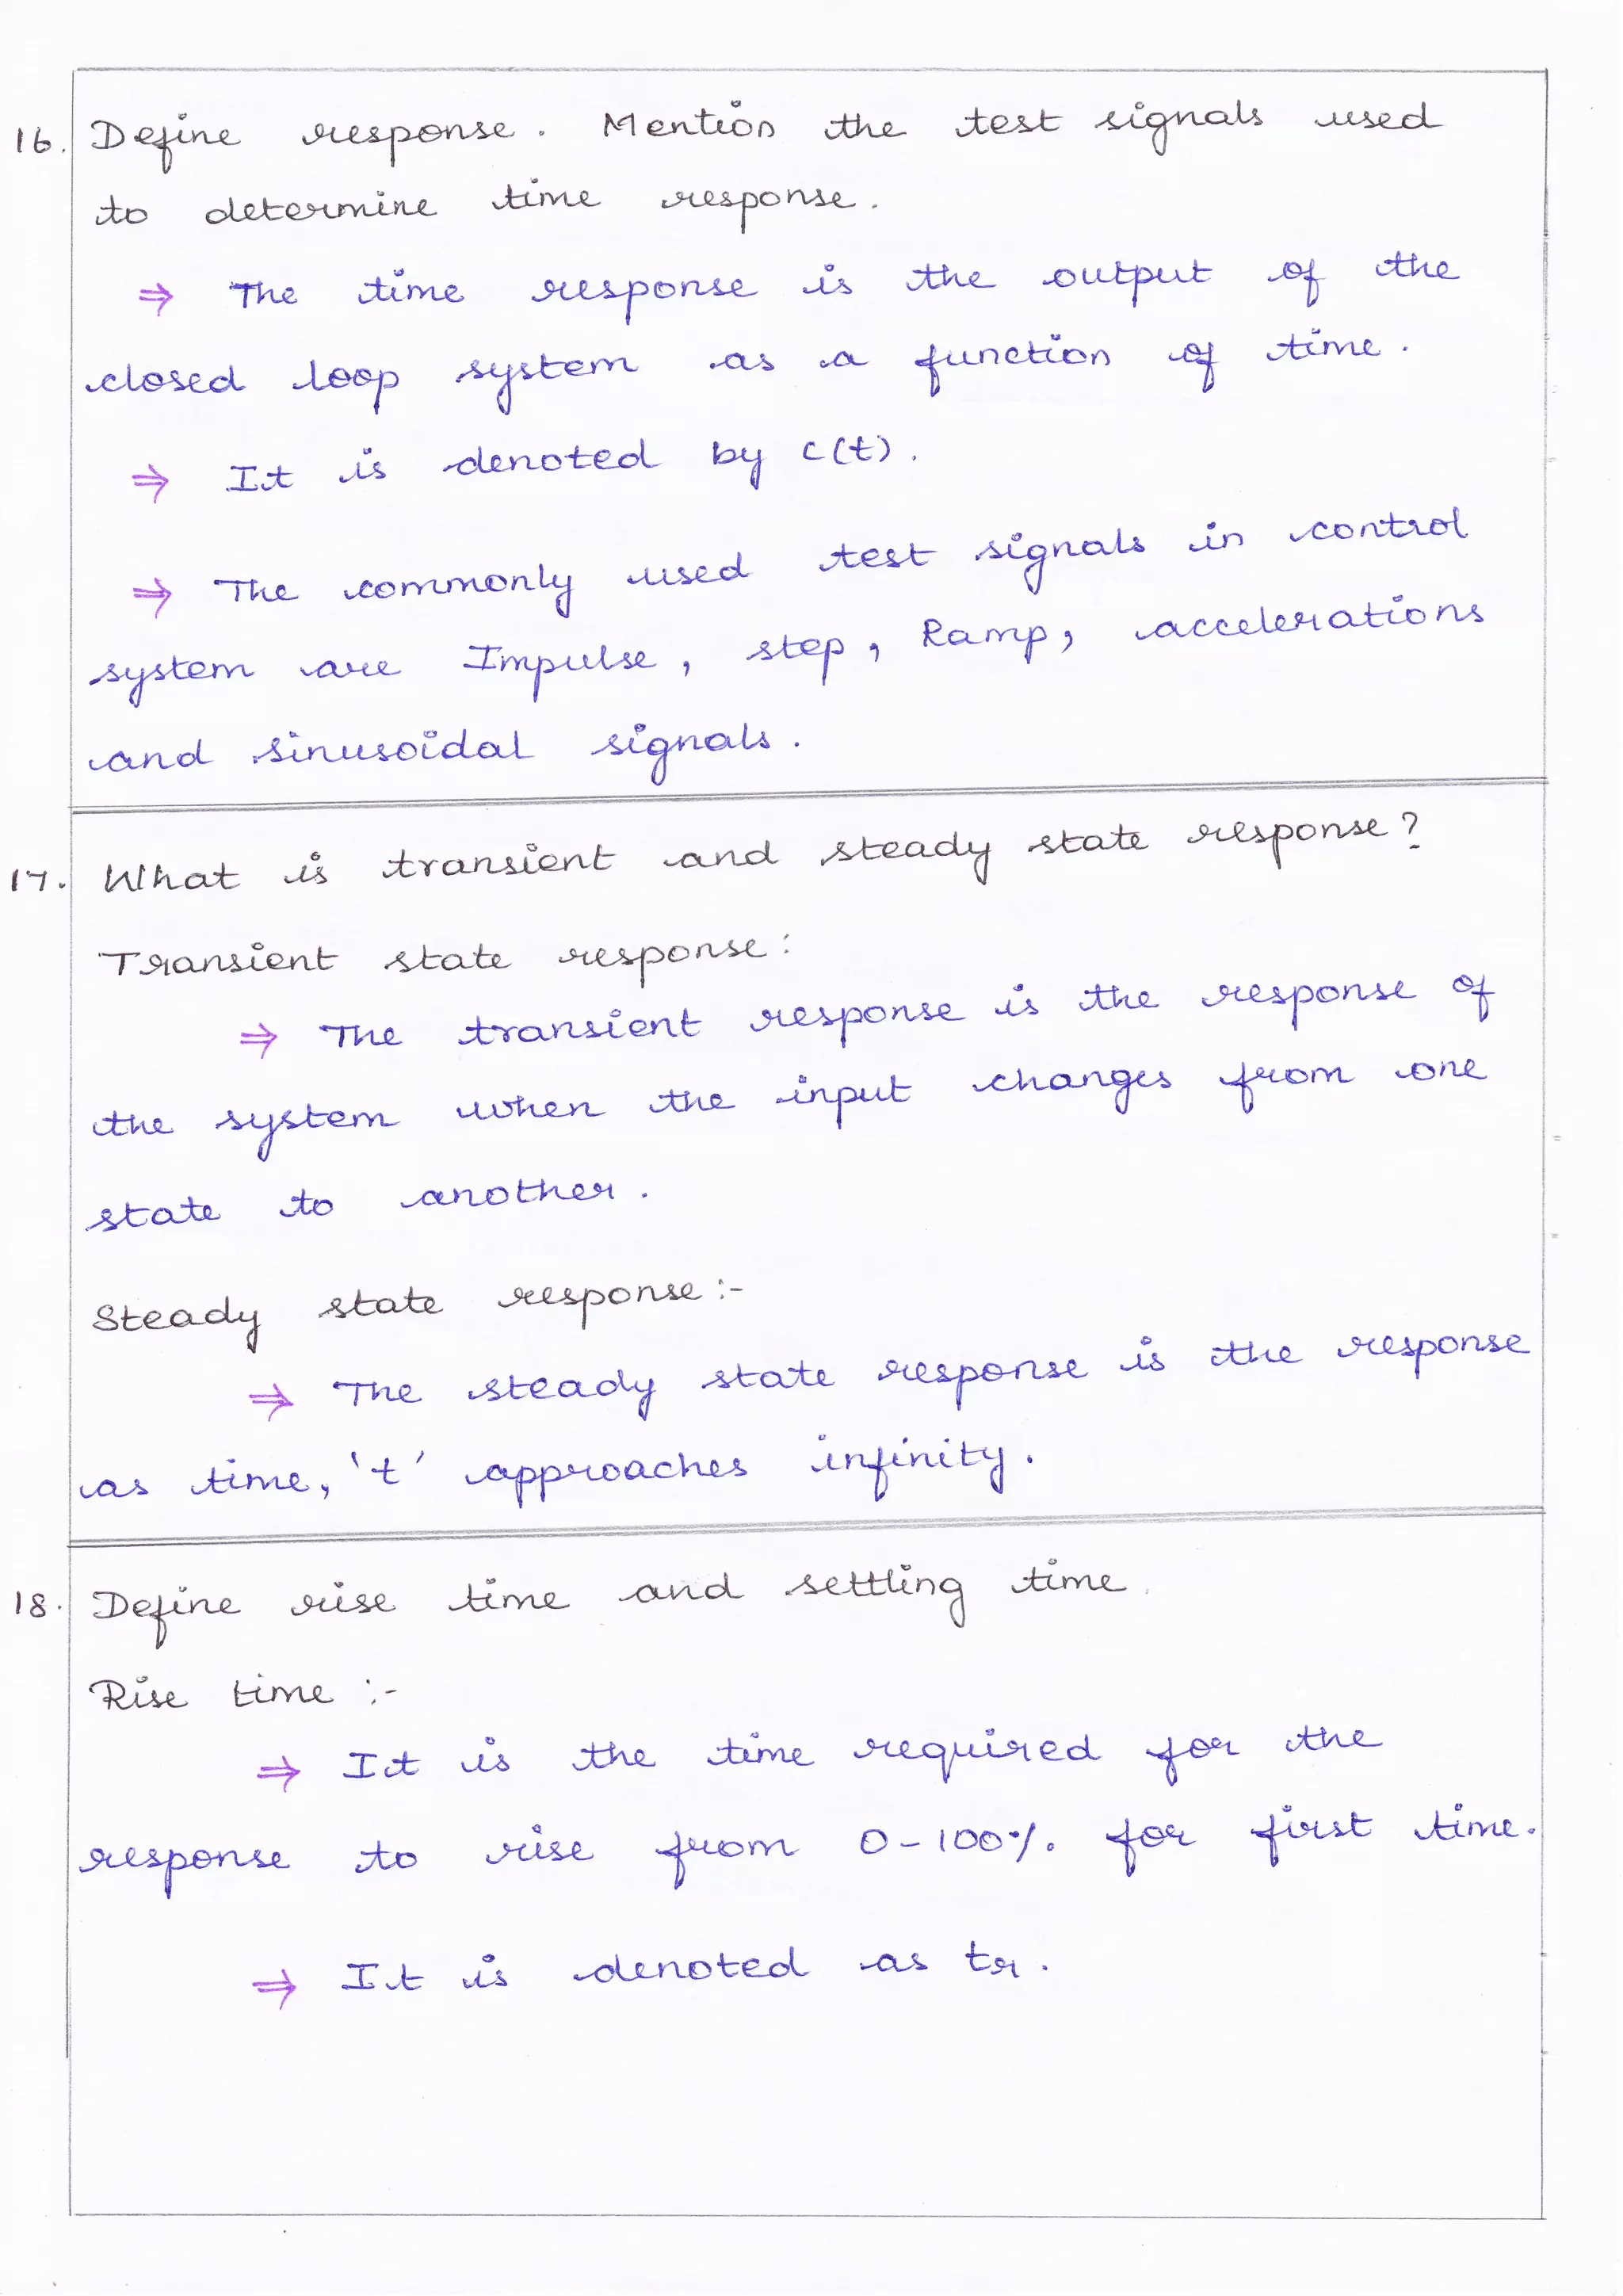 16. Define response. Mention the test signals used
to determine time response.
⇒ The time response is the output of the
closed loop system as a function of time.
⇒ It is denoted by c(t).
⇒ The commonly used test signals in control
system are Impulse, step, Ramp, accelerations
and sinusoidal signals.
17. What is transient and steady state response?
Transient state response:
⇒ The transient response is the response of
the system when the input changes from one
state to another.
Steady state response:-
⇒ The steady state response is the response
as time, 't' approaches infinity.
18. Define rise time and settling time.
Rise time :-
⇒ It is the time required for the
response to rise from 0-100% for first time.
⇒ It is denoted as tr.